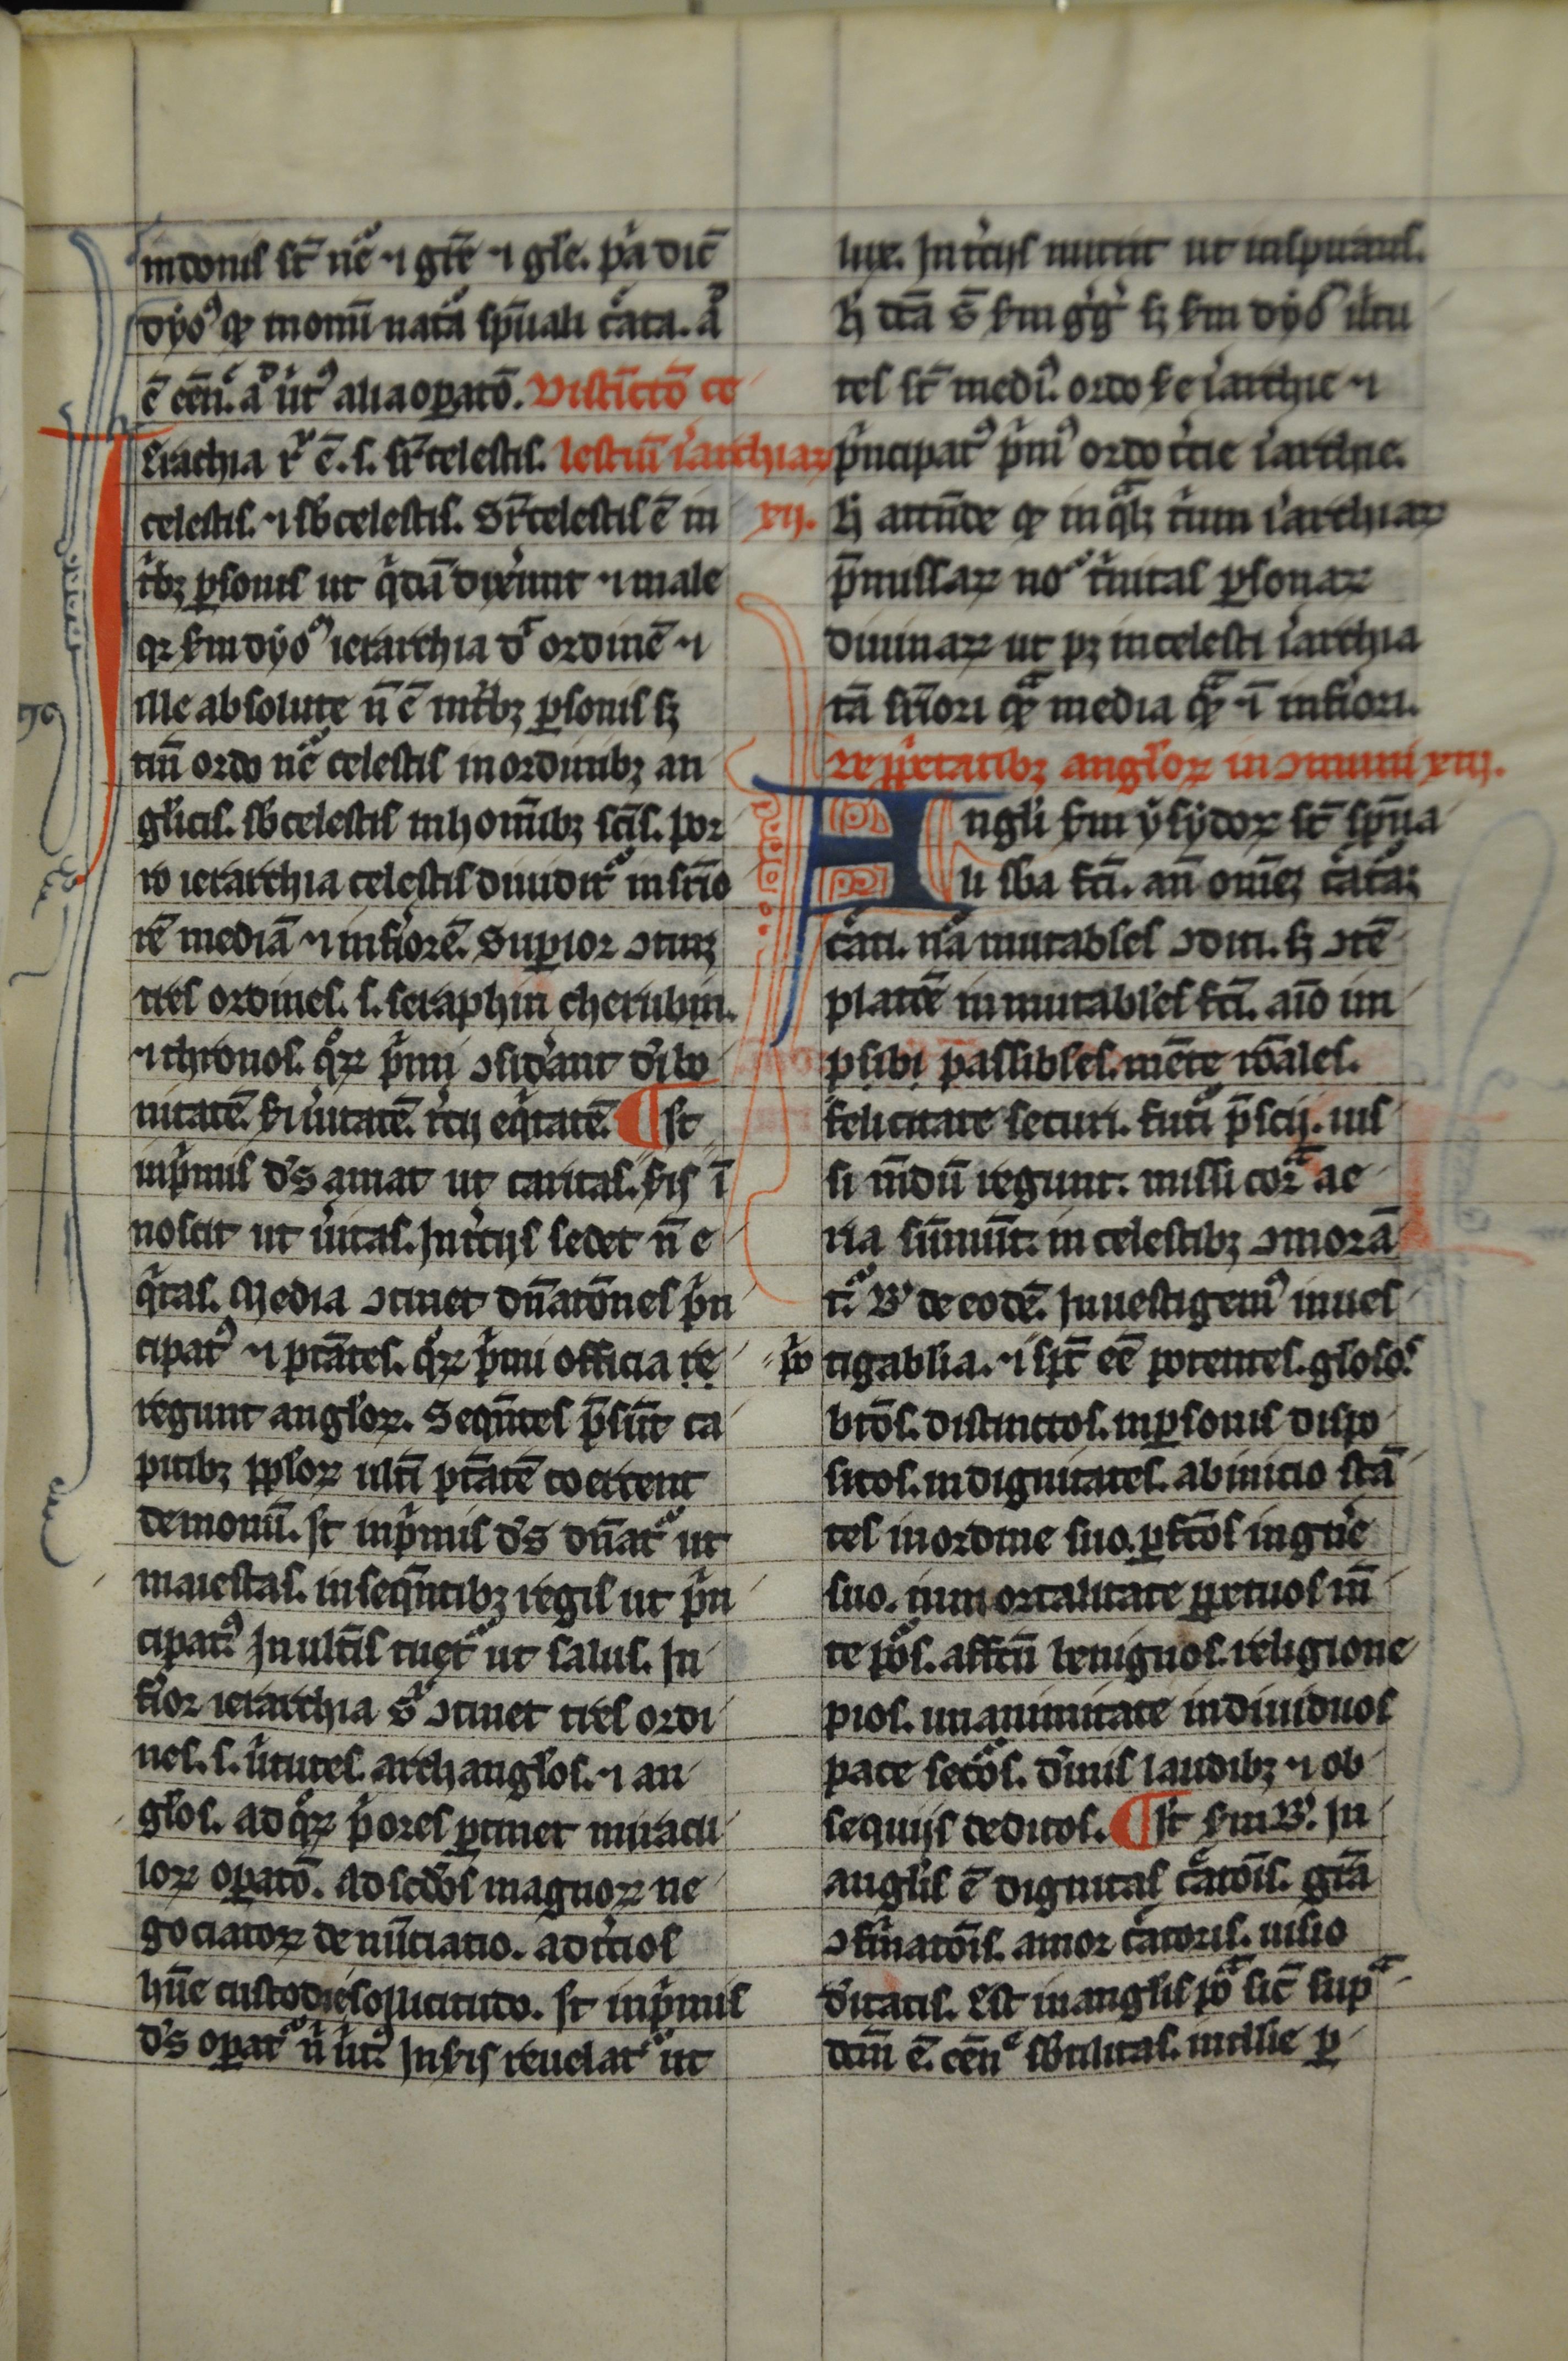 in donis st̄ nc̄ ⁊ gr̄e ⁊ gl̓e. pᷓa dic̄
dyo᷒ ꝙ monū natᷓa spūali cᷓata. a͛
ē ēēn. a͛ u͛t᷒ alia oꝑatō. Distīctō ce
Eiarchia tͥ ē. s. sr̄celestis. lestiū i͛archiaꝝ
celestis. ⁊ sb̓celestis. Sr̄celestis ē in xij.
tͥbꝫ ꝑsonis ut qͥdā dix͛unt ⁊ male
qꝛ km dyo᷒ ierarchia dʳ ordinē ⁊
ille absolute n̄ ē in tͥbꝫ ꝑsonis sꝫ
tm̄ ordo nc̄ celestis in ordinibꝫ an
gl̓icis. sb̓celestis in hom̄ibꝫ sc̄is. por
ro ierarchia celestis diuidit᷑ in sr̄io
rē mediā ⁊ inf͛iorē. Supior ↄtinꝫ
tres ordines. s. seraphin cherubin.
⁊ thronos. qᷓꝝ pͥmi ↄsid͛ant d͛i bo
nitatē. sͥi u͛itatē. t͛cij eqͥtatē. ¶ st̄
in pͥmis d͛s amat ut caritas. sͥis ī
noscit ut u͛itas. In t͛cijs sedet n̄ e
qͥtas. Media ↄtinet dn̄atōnes pͥn
cipat᷒ ⁊ ptātes. qᷓꝝ pͥmi officia re
regunt angl̓oꝝ. Seqn̄tes p̄sūt ca
pitibꝫ ppl̓oꝝ ultī ptātē coercent
demonū. st̄ in pͥmis d͛s dn̄at᷑ ut
maiestas. in seqn̄tibꝫ regis ut pͥn
cipat᷒ In ultīs tuet᷑ ut salus. In
f͛ior ierarchia sͥ ↄtinet tres ordi
nes. s. u͛tutes. archangl̓os. ⁊ an
gl̓os. ad qᷓꝝ pͥores ꝑtinet miracu
loꝝ oꝑatō. Ad scd̓os magnoꝝ ne
gociatoꝝ denūciatio. ad t͛cios
hūe custodie solicitudo. st̄ in pͥmis
d͛s oꝑat᷑ ū u͛t᷒ In sͥis reuelat᷑ ut
lux. In t͛cijs
ħ dc̄a s̄ km gͥgͥ sꝫ km dyo᷒ u͛tu
tes st̄ medi᷒ ordo se i͛archie ⁊
pͥncipat᷒ pͥm᷒ ordo t͛cie i͛archie.
ħ attn̄de ꝙ in qᷓlꝫ tͥum i͛archiaꝝ
p̄missaꝝ no᷑ tͥnitas ꝑsonaꝝ
diuinaꝝ ut pꝫ in celesti i͛archia
tā sr̄iori qᷓ media qᷓ ⁊ ī inf͛iori.
De ꝓpͥetatibꝫ angl̓oꝝ in ↄmuni xiij.
Angl̓i km ysydoꝝ st̄ spūa
li sb̓a fc̄i. an̄ om̄eꝫ cᷓatᷓaꝫ
cᷓati. nᷓa mutabl̓es ↄditi. sꝫ ↄtē
platōe inmutabl̓es fc̄i. aīo im
psibi passibl̓es. mēte rōales.
felicitate securi. futi͛ p̄scij. ius
si mūdū regunt. missi corᷓ ae
ria sūmūt. in celestibꝫ ↄmorā
t᷑. B᷒ de eodē. Inuestigem᷒ inues
tigablia. ⁊ sp̄c ēē potentes. gl̓oso.᷒
btōs. distinctos. in ꝑsonis dispo
sitos. in dignitates. ab inicio stā
tes in ordine suo. ꝑfc̄os in gn̄e
suo. inmortalitate ꝑpetuos m̄
te pᷓos. affc̄u benignos. religione
pios. unanimitate indiuiduos
pace secᷓos. d͛inis laudibꝫ ⁊ ob
sequijs deditos. ¶ st̄ km B᷒. In
angl̓is ē dignitas cᷓatōis. gr̄a
ↄfirmatōis. amor cᷓatoris. uisio
d͛itatis. Est in angl̓is pᷓ sic̄ supᷓ
dcm̄ ē. ēēn͛ sb̓tilitas. intllie ꝑ